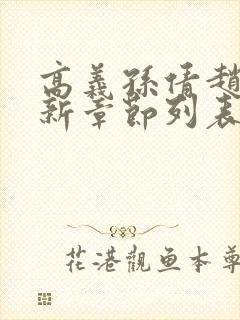 高義孫倩趙
新章節列表
花港觀魚本尊